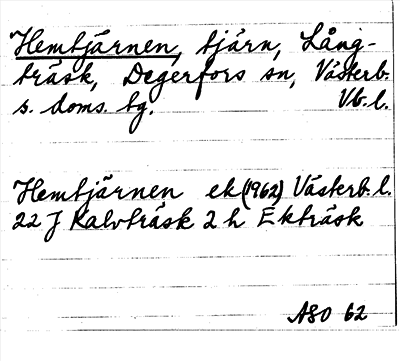 Hemtjärnen, tjärn, Lång-
träsk, Degerfors sn, Västerb.
s. doms. tg. Vb. l.
Hemtjärnen ek (1962) Västerb. l.
22 J Kalvträsk 2 h Ekträsk
ASO 62